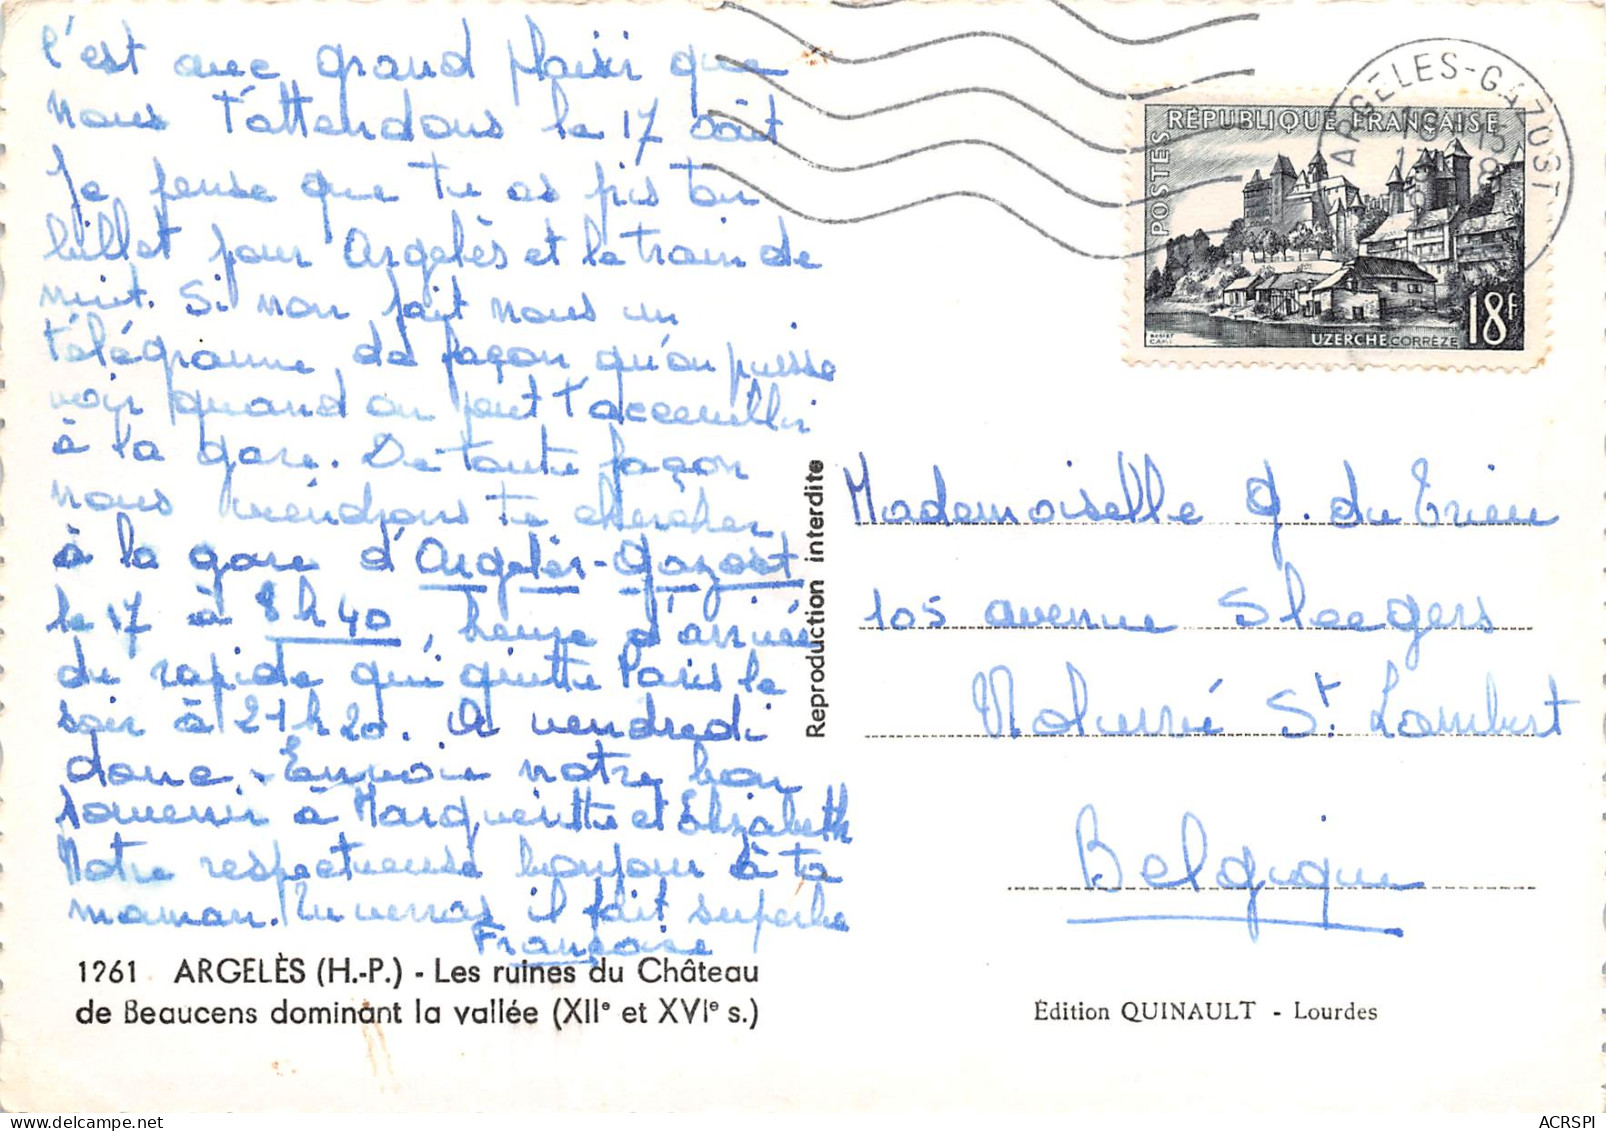 C'est avec grand plaisir que
nous t'attendons le 17 août
Je pense que tu as pris ton
billet pour Argelès et le train de
nuit. Si non fait nous un
télégramme de façon qu'on puisse
voir quand on peut t'accueillir
à la gare. De toute façon
nous viendrons te chercher
à la gare d'Argelès-Gazost
le 17 à 8h40, heure d'arrivée
du rapide qui quitte Paris le
soir à 21h20. A vendredi
donc. Envoie notre bon
souvenir à Marguerite et Elizabeth
Notre respectueuse bonjour à ta
maman. Tu verras il fait superbe
Françoise
1961 ARGELÈS (H.-P.) - Les ruines du Château
de Beaucens dominant la vallée (XIIe et XVIe s.)
Reproduction interdite
ARGELES-GAZOST
RÉPUBLIQUE FRANÇAISE
POSTES
18F
UZERCHE.CORRÈZE
Mademoiselle G. du Trieu
105 avenue Sleegers
Woluwé St. Lambert
Belgique
Édition QUINAULT - Lourdes
ACRSPI